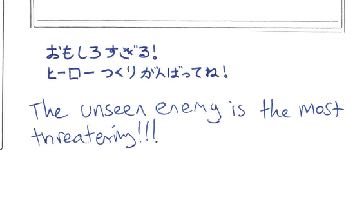 おもしろすぎる!
ヒーローつくりがんばってね!
The unseen enemy is the most
threatering!!!